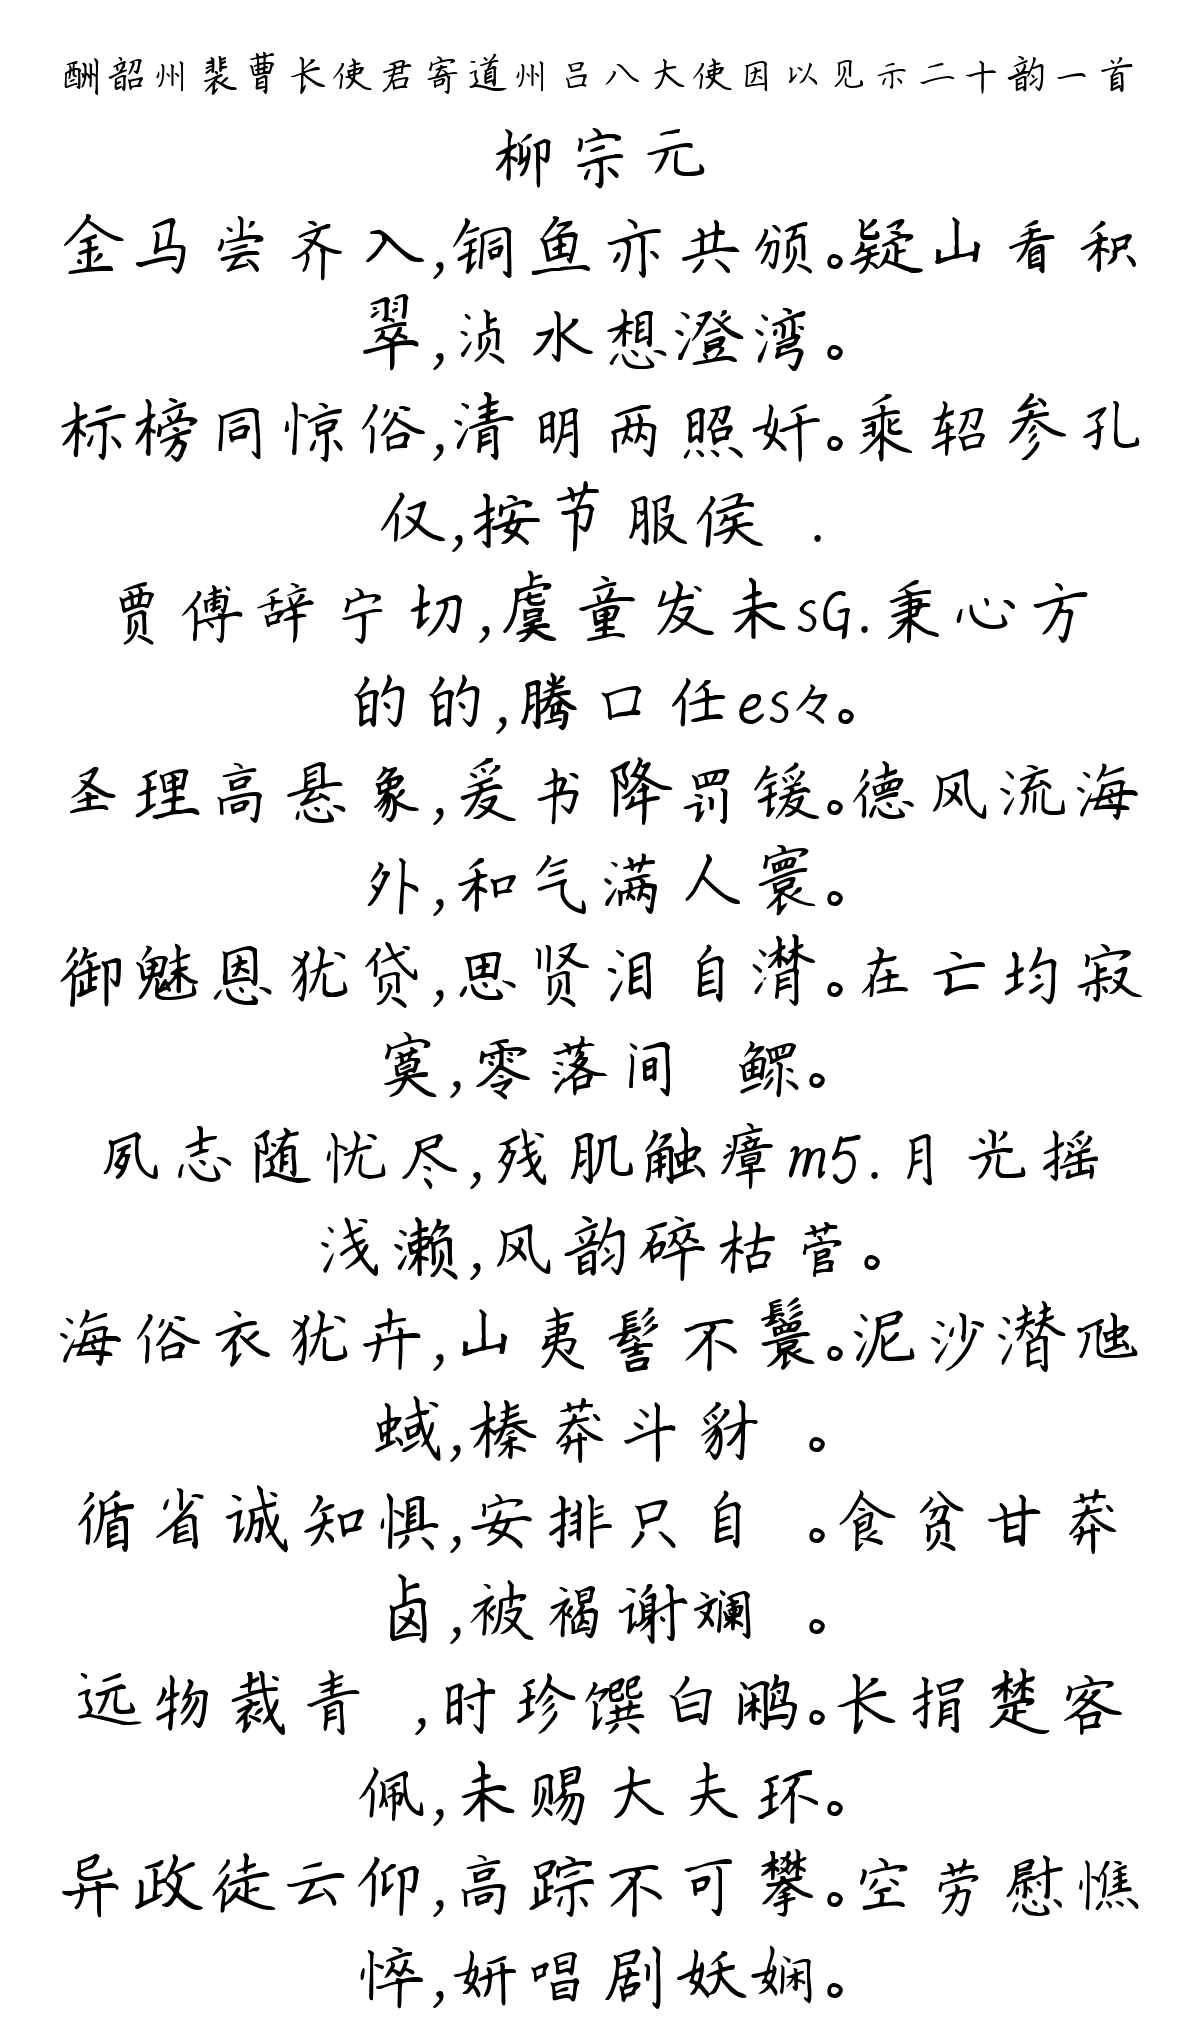 酬韶州裴曹长使君寄道州吕八大使因以见示二十韵一首
柳宗元
金马尝齐入,铜鱼亦共颁。疑山看积
翠,浈水想澄湾。
标榜同惊俗,清明两照奸。乘轺参孔
仅,按节服侯 .
贾傅辞宁切,虞童发未sG.秉心方
的的,腾口任es々。
圣理高悬象,爰书降罚锾。德风流海
外,和气满人寰。
御魅恩犹贷,思贤泪自潸。在亡均寂
寞,零落间 鳏。
夙志随忧尽,残肌触瘴m5.月光摇
浅濑,风韵碎枯菅。
海俗衣犹卉,山夷髻不鬟。泥沙潜虺
蜮,榛莽斗豺 。
循省诚知惧,安排只自 。食贫甘莽
卤,被褐谢斓 。
远物裁青 ,时珍馔白鹇。长捐楚客
佩,未赐大夫环。
异政徒云仰,高踪不可攀。空劳慰憔
悴,妍唱剧妖娴。